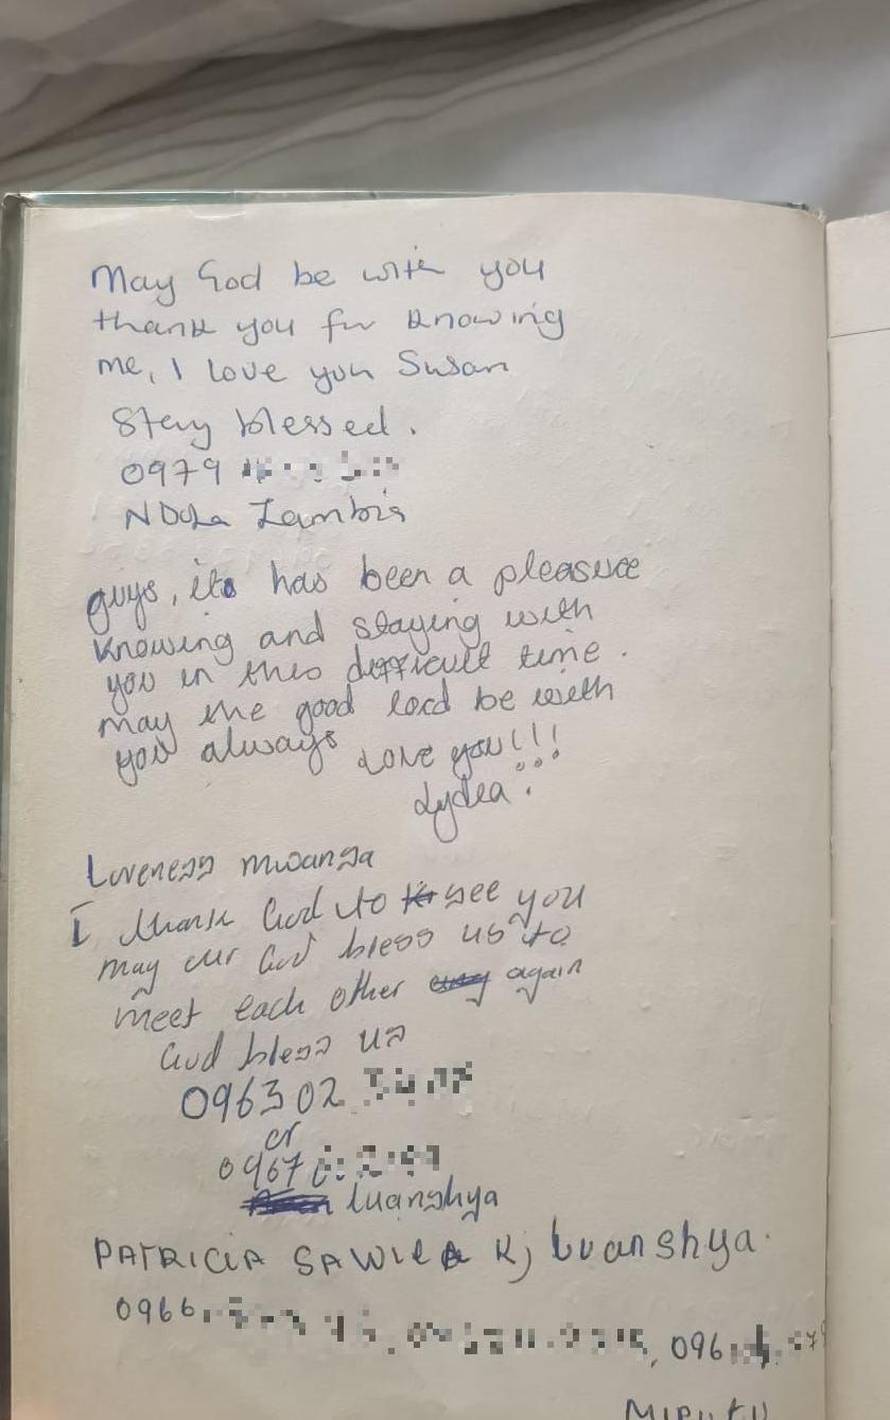 May God be with you
thank you for knowing
me, I love you Susan
Stay blessed.
0979
Ndola Zambia
guys, its has been a pleasure
knowing and staying with
you in this difficult time.
may the good lord be with
you always Love you!!!
Lydia
Loveness mwansa
I thank God to see you
may our God bless us to
meet each other again
God bless us
096302
or
0967
Luanshya
PATRICIA SAWILA K, Luanshya.
0966
, 096